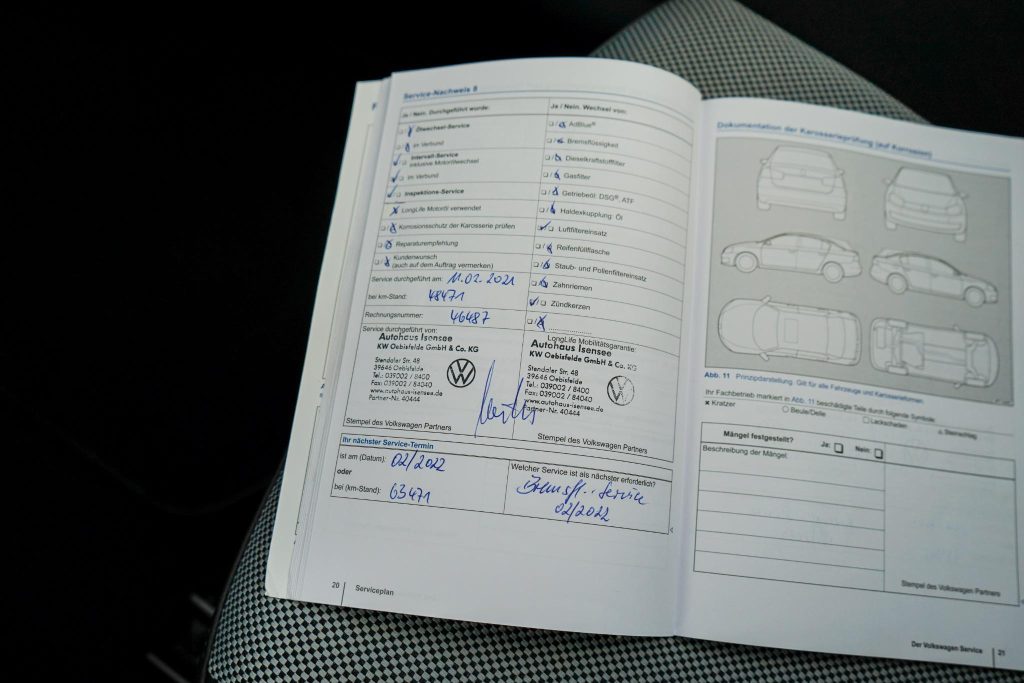 Service-Nachweis 8
Ja / Nein. Durchgeführt wurde:
Ölwechsel-Service
im Verbund
Intervall-Service
inklusive Motorölwechsel
im Verbund
Inspektions-Service
LongLife Motoröl verwendet
Korrosionsschutz der Karosserie prüfen
Reparaturempfehlung
Kundenwunsch
(auch auf dem Auftrag vermerken)
Service durchgeführt am: 11.02.2021
bei km-Stand: 48471
Rechnungsnummer: 46487
Service durchgeführt von:
Autohaus Isensee
KW Oebisfelde GmbH & Co. KG
Stendaler Str. 48
39646 Oebisfelde
Tel.: 039002 / 8400
Fax: 039002 / 84040
www.autohaus-isensee.de
Partner-Nr. 40444
Stempel des Volkswagen Partners
Ja / Nein. Wechsel von:
AdBlue®
Bremsflüssigkeit
Dieselkraftstofffilter
Gasfilter
Getriebeöl: DSG®, ATF
Haldexkupplung: Öl
Luftfiltereinsatz
Reifenfüllflasche
Staub- und Pollenfiltereinsatz
Zahnriemen
Zündkerzen
LongLife Mobilitätsgarantie:
Autohaus Isensee
KW Oebisfelde GmbH & Co. KG
Stendaler Str. 48
39646 Oebisfelde
Tel.: 039002 / 8400
Fax: 039002 / 84040
www.autohaus-isensee.de
Partner-Nr. 40444
Stempel des Volkswagen Partners
Ihr nächster Service-Termin
ist am (Datum): 02/2022
oder
bei (km-Stand): 63471
Welcher Service ist als nächster erforderlich?
Bremsfl.-Service
02/2022
20
Serviceplan
Dokumentation der Karosserieprüfung (auf Korrosion)
Abb. 11 Prinzipdarstellung: Gilt für alle Fahrzeuge und Karosserieformen.
Ihr Fachbetrieb markiert in Abb. 11 beschädigte Teile durch folgende Symbole:
× Kratzer ○ Beule/Delle □ Lackschaden △ Steinschlag
Mängel festgestellt? Ja: Nein:
Beschreibung der Mängel:
Stempel des Volkswagen Partners
Der Volkswagen Service
21